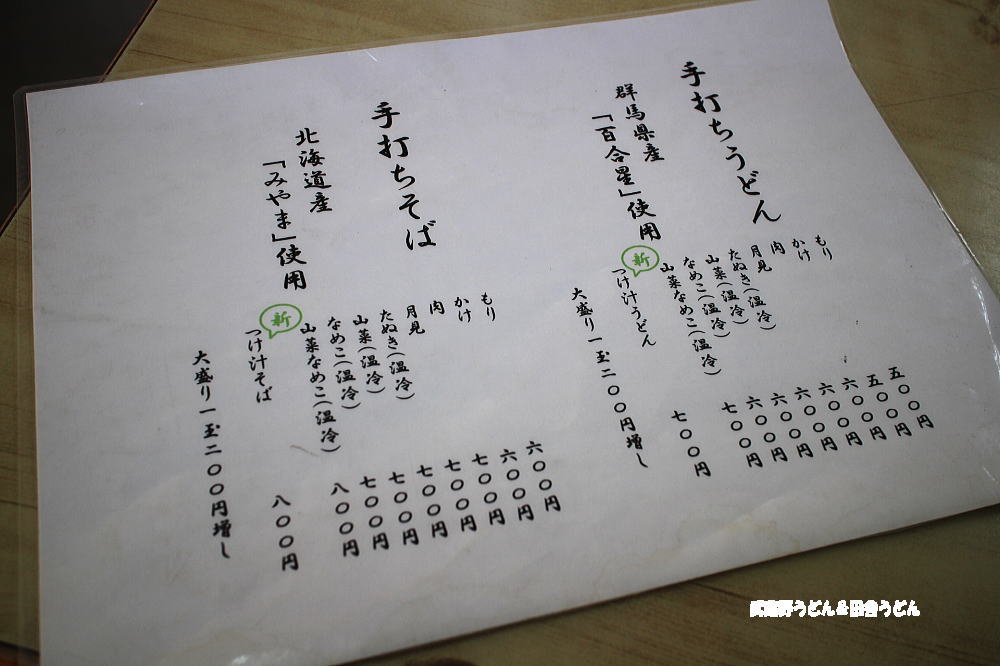 手打ちうどん
群馬県産
「百合星」使用
もり 五〇〇円
かけ 五〇〇円
肉 六〇〇円
月見 六〇〇円
たぬき(温冷) 六〇〇円
山菜(温冷) 六〇〇円
なめこ(温冷) 六〇〇円
山菜なめこ(温冷) 七〇〇円
新 つけ汁うどん 七〇〇円
大盛り一玉二〇〇円増し
手打ちそば
北海道産
「みやま」使用
もり 六〇〇円
かけ 六〇〇円
肉 七〇〇円
月見 七〇〇円
たぬき(温冷) 七〇〇円
山菜(温冷) 七〇〇円
なめこ(温冷) 七〇〇円
山菜なめこ(温冷) 八〇〇円
新 つけ汁そば 八〇〇円
大盛り一玉二〇〇円増し
武蔵野うどん＆田舎うどん